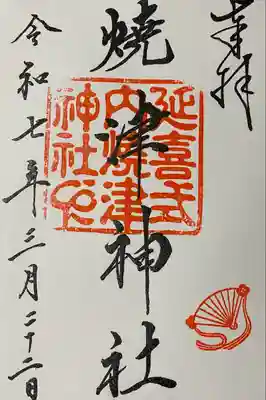 奉拝
焼津神社
延喜式
内焼津
神社印
令和七年三月二十二日